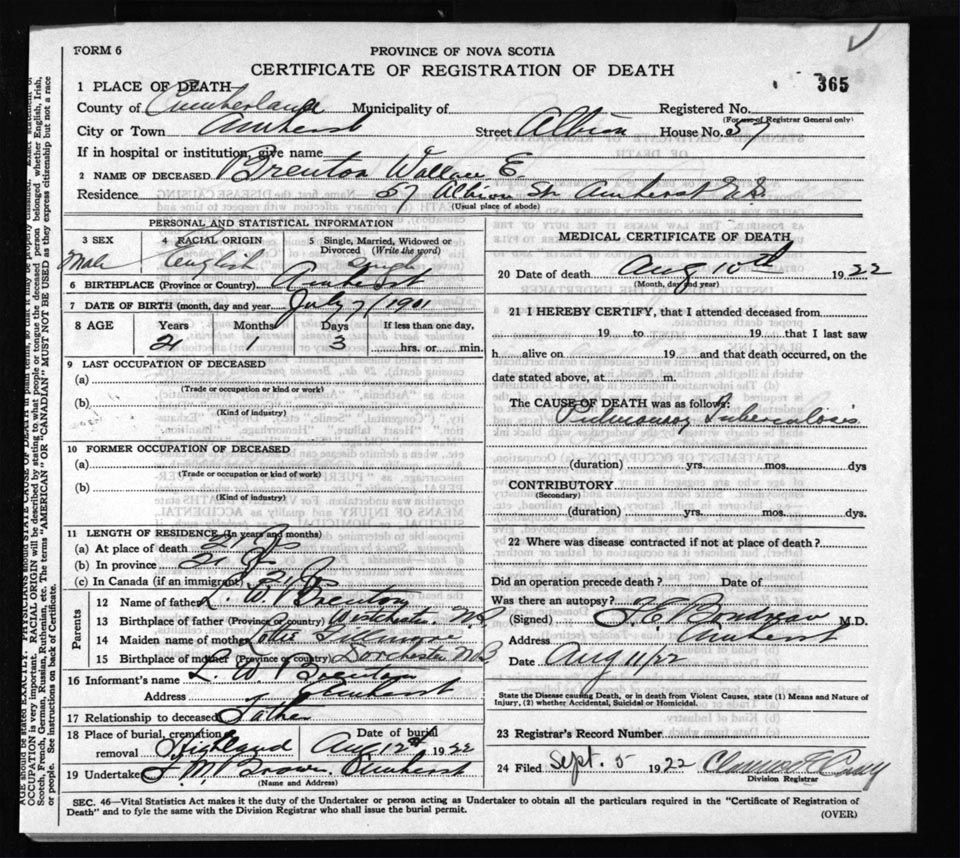 FORM 6
PROVINCE OF NOVA SCOTIA
CERTIFICATE OF REGISTRATION OF DEATH
365
1 PLACE OF DEATH—
County of Cumberland Municipality of Registered No.
(For use of Registrar General only)
City or Town Amherst Street Albion House No. 57
If in hospital or institution, give name
2 NAME OF DECEASED Brenton Wallace E.
Residence 57 Albion St. Amherst N.S.
(Usual place of abode)
PERSONAL AND STATISTICAL INFORMATION
3 SEX 4 RACIAL ORIGIN 5 Single, Married, Widowed or
Divorced (Write the word)
Male English Single
6 BIRTHPLACE (Province or Country) Amherst
7 DATE OF BIRTH (month, day and year) July 7/1901
8 AGE Years Months Days If less than one day,
21 1 3 hrs. or min.
9 LAST OCCUPATION OF DECEASED
(a)
(Trade or occupation or kind or work)
(b)
(Kind of industry)
10 FORMER OCCUPATION OF DECEASED
(a)
(Trade or occupation or kind of work)
(b)
(Kind of industry)
11 LENGTH OF RESIDENCE (In years and months)
(a) At place of death 21 yrs
(b) In province 21 yrs
(c) In Canada (if an immigrant) 21 yrs
Parents
12 Name of father L. W. Brenton
13 Birthplace of father (Province or country) Westchester N.S.
14 Maiden name of mother
15 Birthplace of mother (Province or country) Dorchester N.B.
16 Informant's name L. W. Brenton
Address Amherst
17 Relationship to deceased Father
18 Place of burial, cremation Date of burial
removal Highland Aug 12th 1922
19 Undertaker Brown Amherst
(Name and Address)
MEDICAL CERTIFICATE OF DEATH
20 Date of death Aug 10th 1922
(Month, day and year)
21 I HEREBY CERTIFY, that I attended deceased from
19 to 19 that I last saw
h alive on 19 and that death occurred, on the
date stated above, at m.
The CAUSE OF DEATH was as follows:
Pulmonary Tuberculosis
(duration) yrs. mos. dys
CONTRIBUTORY
(Secondary)
(duration) yrs. mos. dys.
22 Where was disease contracted if not at place of death?
Did an operation precede death? Date of
Was there an autopsy?
(Signed) M.D.
Address Amherst
Date Aug 11/22
State the Disease causing Death, or in death from Violent Causes, state (1) Means and Nature of
Injury, (2) whether Accidental, Suicidal or Homicidal.
23 Registrar's Record Number
24 Filed Sept. 5 1922
Division Registrar
SEC. 46—Vital Statistics Act makes it the duty of the Undertaker or person acting as Undertaker to obtain all the particulars required in the "Certificate of Registration of
Death" and to fyle the same with the Division Registrar who shall issue the burial permit.
(OVER)
OCCUPATION is very important. RACIAL ORIGIN will be described by stating to what people or tongue the deceased person belonged whether English, Irish,
Scotch, French, German, Russian, Ruthenian, etc. The terms "AMERICAN" OR "CANADIAN" MUST NOT BE USED as they express citizenship but not a race
or people. See instructions on back of Certificate.